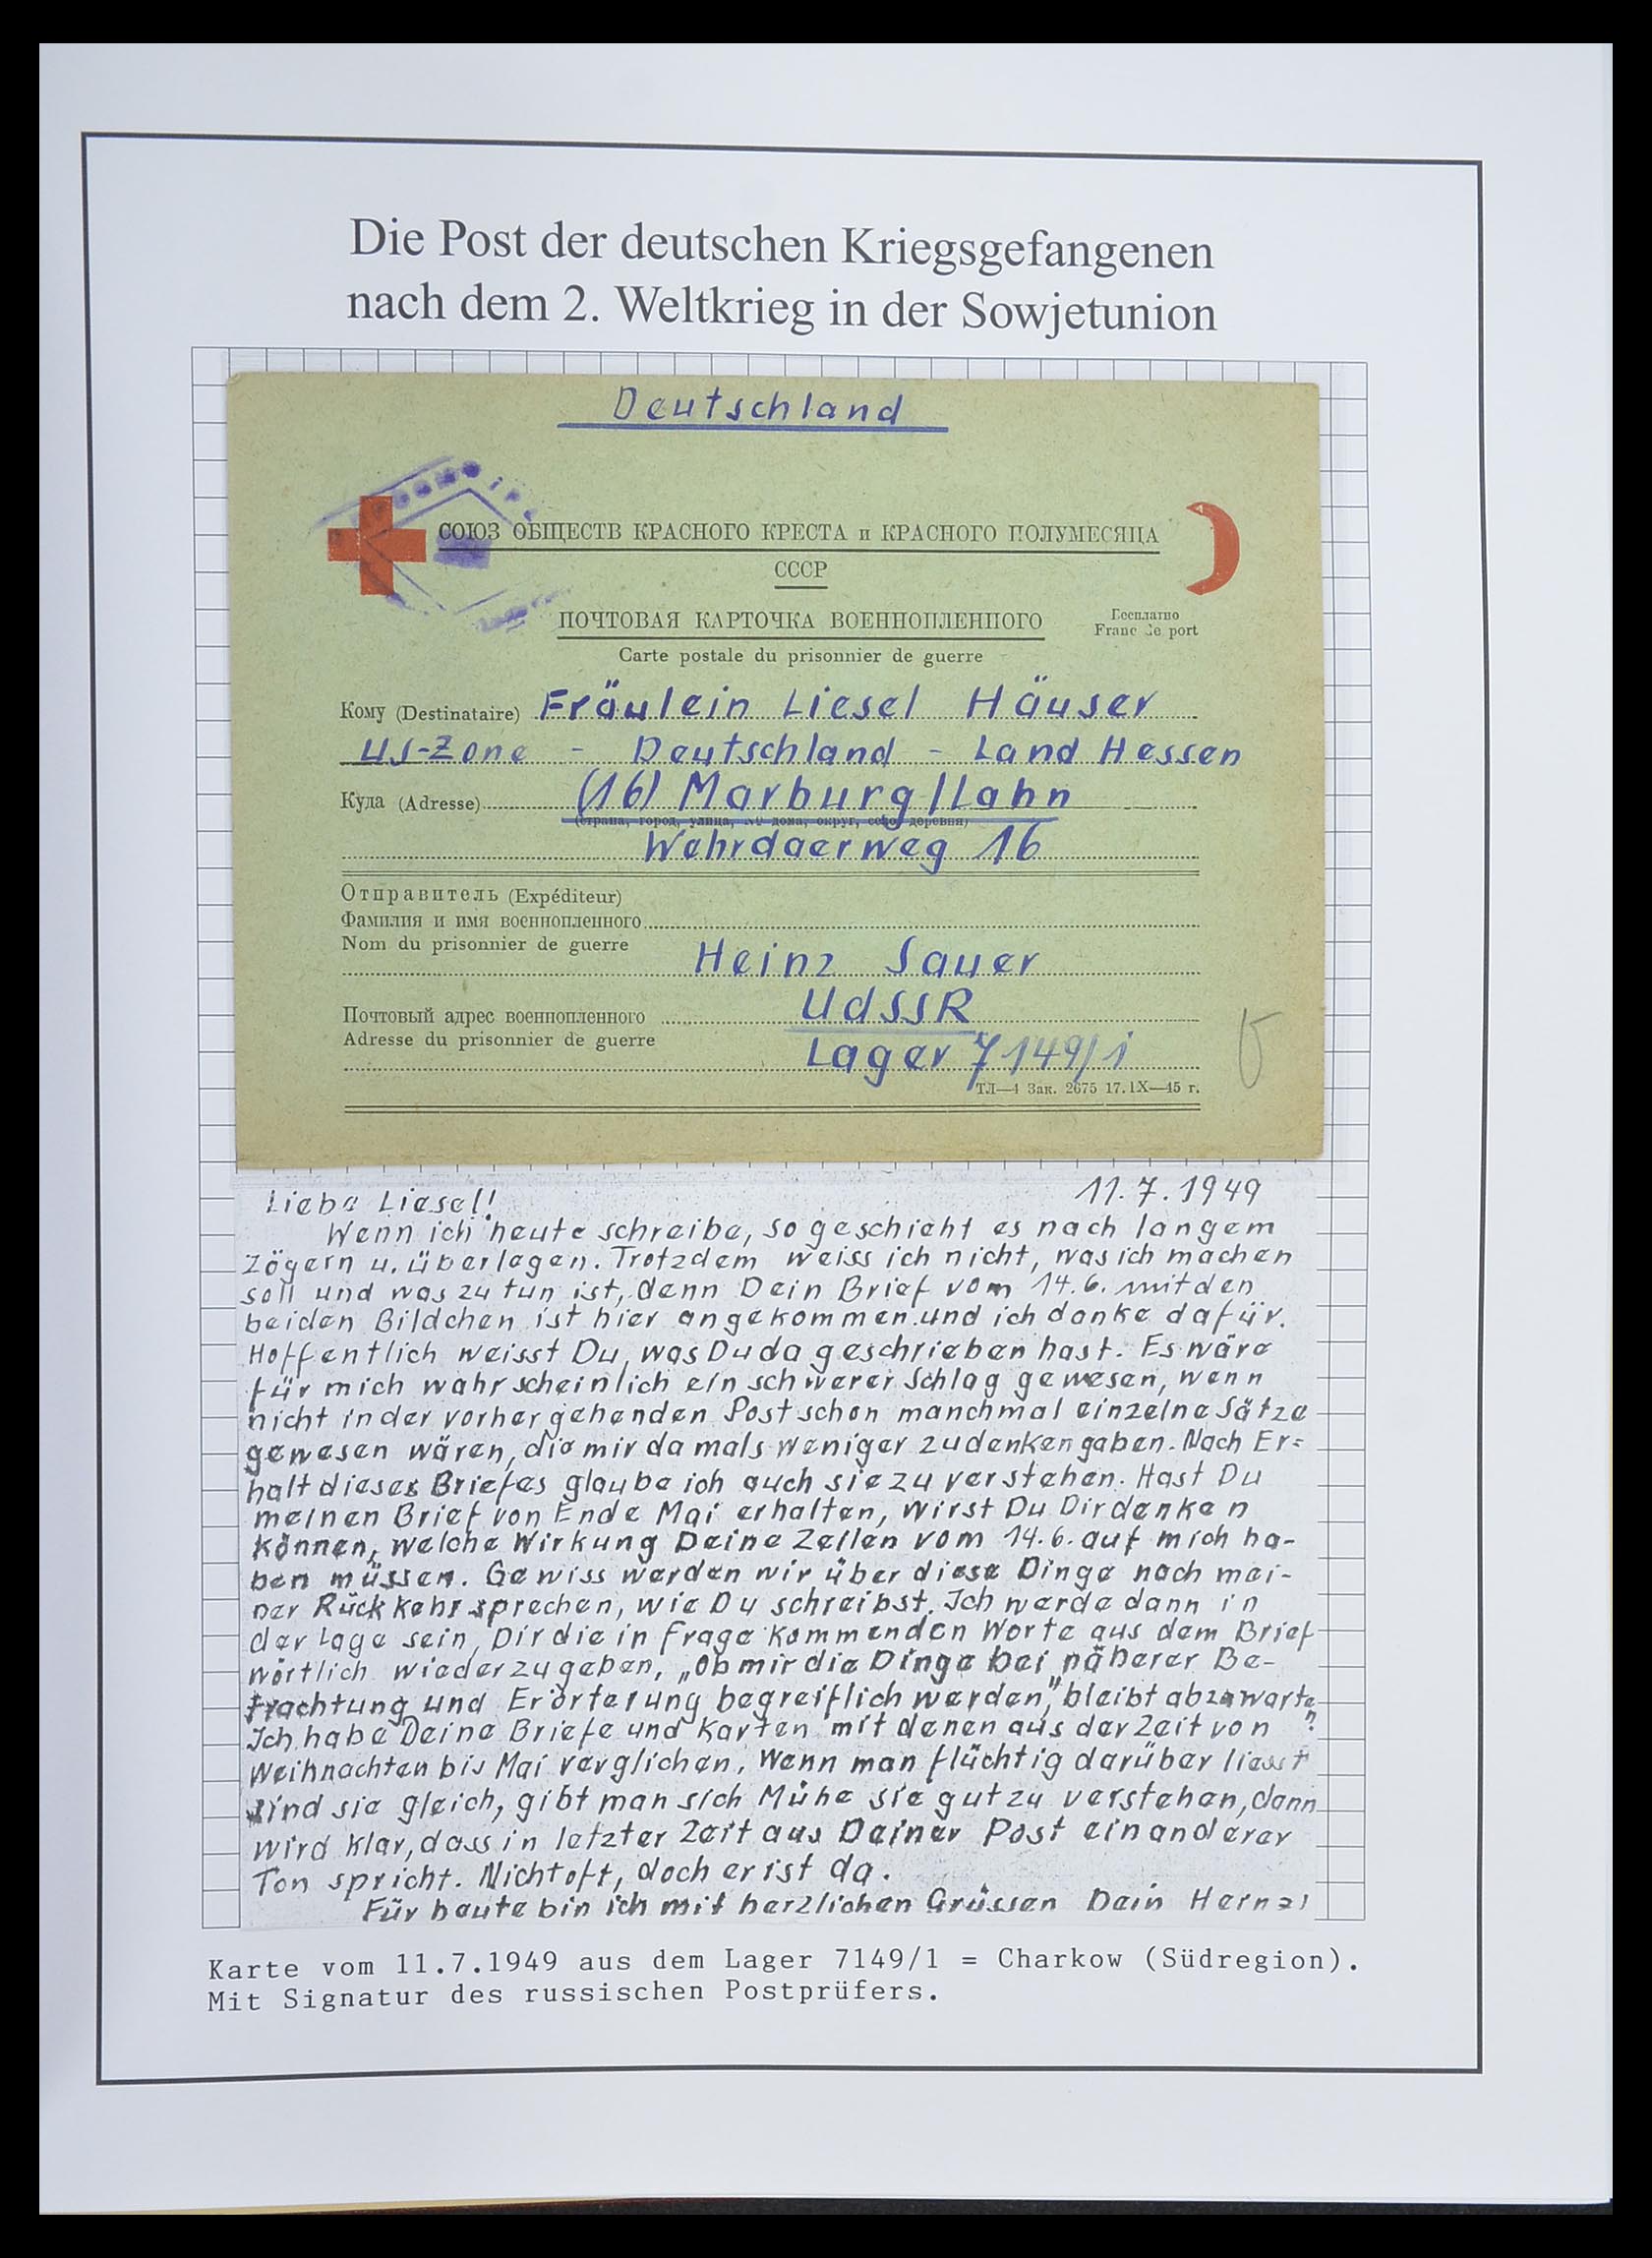 Die Post der deutschen Kriegsgefangenen
nach dem 2. Weltkrieg in der Sowjetunion
Deutschland
СОЮЗ ОБЩЕСТВ КРАСНОГО КРЕСТА и КРАСНОГО ПОЛУМЕСЯЦА
СССР
ПОЧТОВАЯ КАРТОЧКА ВОЕННОПЛЕННОГО
Бесплатно
Franc de port
Carte postale du prisonnier de guerre
Кому (Destinataire) Fräulein Liesel Häuser
US-Zone - Deutschland - Land Hessen
Куда (Adresse) (16) Marburg/Lahn
(страна, город, улица, № дома, округ, село, деревня)
Wehrdaerweg 16
Отправитель (Expéditeur)
Фамилия и имя военнопленного
Nom du prisonnier de guerre
Heinz Sauer
Почтовый адрес военнопленного UdSSR
Adresse du prisonnier de guerre
Lager 7149/1
ТЛ—4 Зак. 2675 17.IX—45 г.
11.7.1949
Liebe Liesel!
Wenn ich heute schreibe, so geschieht es nach langem
Zögern u. überlegen. Trotzdem weiss ich nicht, was ich machen
soll und was zu tun ist, denn Dein Brief vom 14.6. mit den
beiden Bildchen ist hier angekommen und ich danke dafür.
Hoffentlich weisst Du, was Du da geschrieben hast. Es wäre
für mich wahrscheinlich ein schwerer Schlag gewesen, wenn
nicht in der vorhergehenden Post schon manchmal einzelne Sätze
gewesen wären, die mir damals weniger zu denken gaben. Nach Er=
halt dieses Briefes glaube ich auch sie zu verstehen. Hast Du
meinen Brief von Ende Mai erhalten, wirst Du Dir denken
können, welche Wirkung Deine Zeilen vom 14.6. auf mich ha-
ben müssen. Gewiss werden wir über diese Dinge nach mei-
ner Rückkehr sprechen, wie Du schreibst. Ich werde dann in
der Lage sein, Dir die in Frage kommenden Worte aus dem Brief
wörtlich wiederzugeben, „Ob mir die Dinge bei näherer Be-
trachtung und Erörterung begreiflich werden," bleibt abzuwarten
Ich habe Deine Briefe und Karten mit denen aus der Zeit von
Weihnachten bis Mai verglichen. Wenn man flüchtig darüber liesst
sind sie gleich, gibt man sich Mühe sie gut zu verstehen, dann
wird klar, dass in letzter Zeit aus Deiner Post ein anderer
Ton spricht. Nicht oft, doch er ist da.
Für heute bin ich mit herzlichen Grüssen Dein Heinz!
Karte vom 11.7.1949 aus dem Lager 7149/1 = Charkow (Südregion).
Mit Signatur des russischen Postprüfers.